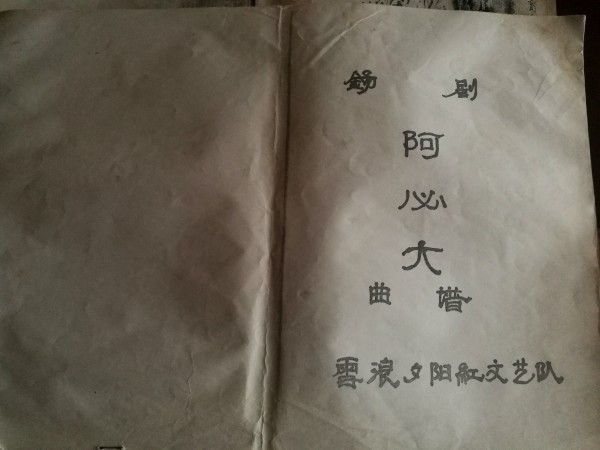 锡剧
阿
必
大
曲谱
雪浪夕阳红文艺队